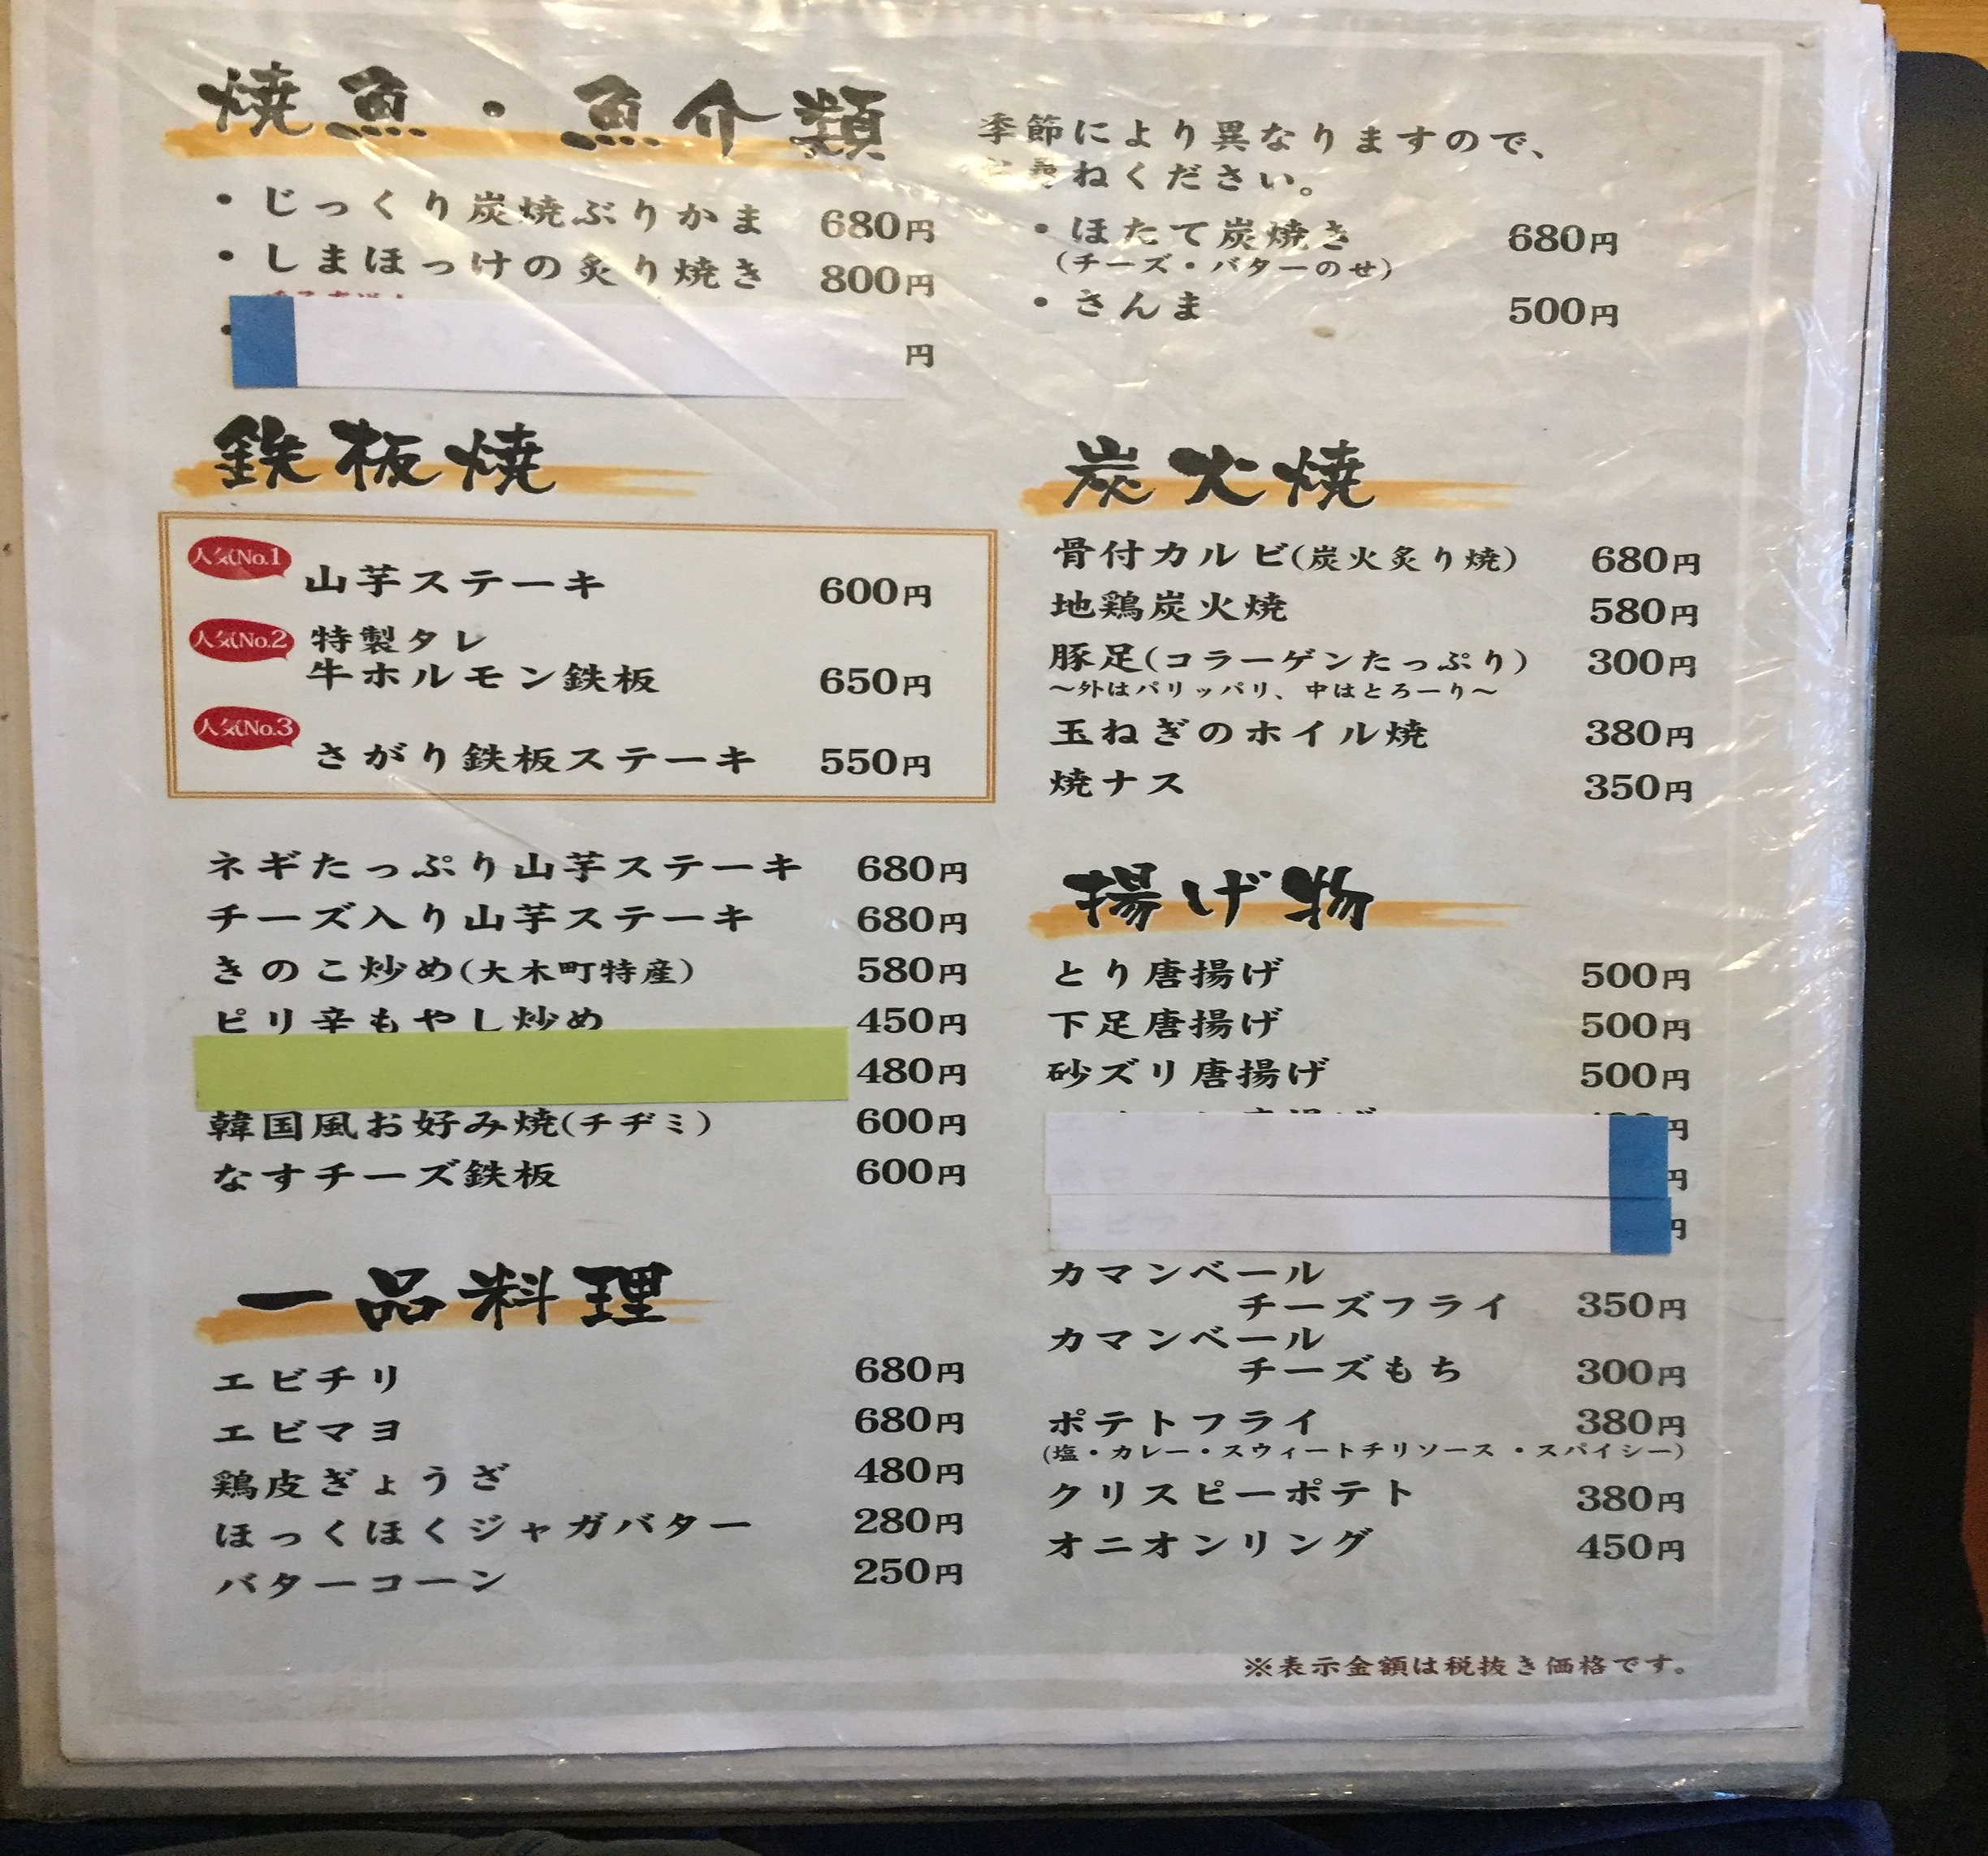 焼魚・魚介類
季節により異なりますので、
尋ねください。
・じっくり炭焼ぶりかま 680円
・しまほっけの炙り焼き 800円
円
・ほたて炭焼き 680円
(チーズ・バターのせ)
・さんま 500円
鉄板焼
人気No.1
山芋ステーキ 600円
人気No.2 特製タレ
牛ホルモン鉄板 650円
人気No.3
さがり鉄板ステーキ 550円
ネギたっぷり山芋ステーキ 680円
チーズ入り山芋ステーキ 680円
きのこ炒め(大木町特産) 580円
ピリ辛もやし炒め 450円
480円
韓国風お好み焼(チヂミ) 600円
なすチーズ鉄板 600円
一品料理
エビチリ 680円
エビマヨ 680円
鶏皮ぎょうざ 480円
ほっくほくジャガバター 280円
バターコーン 250円
炭火焼
骨付カルビ(炭火炙り焼) 680円
地鶏炭火焼 580円
豚足(コラーゲンたっぷり) 300円
~外はパリッパリ、中はとろーり~
玉ねぎのホイル焼 380円
焼ナス 350円
揚げ物
とり唐揚げ 500円
下足唐揚げ 500円
砂ズリ唐揚げ 500円
円
円
円
カマンベール
チーズフライ 350円
カマンベール
チーズもち 300円
ポテトフライ 380円
(塩・カレー・スウィートチリソース・スパイシー)
クリスピーポテト 380円
オニオンリング 450円
※表示金額は税抜き価格です。